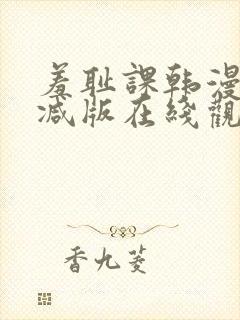 羞耻課韩漫
减版在綫觀
香九菱